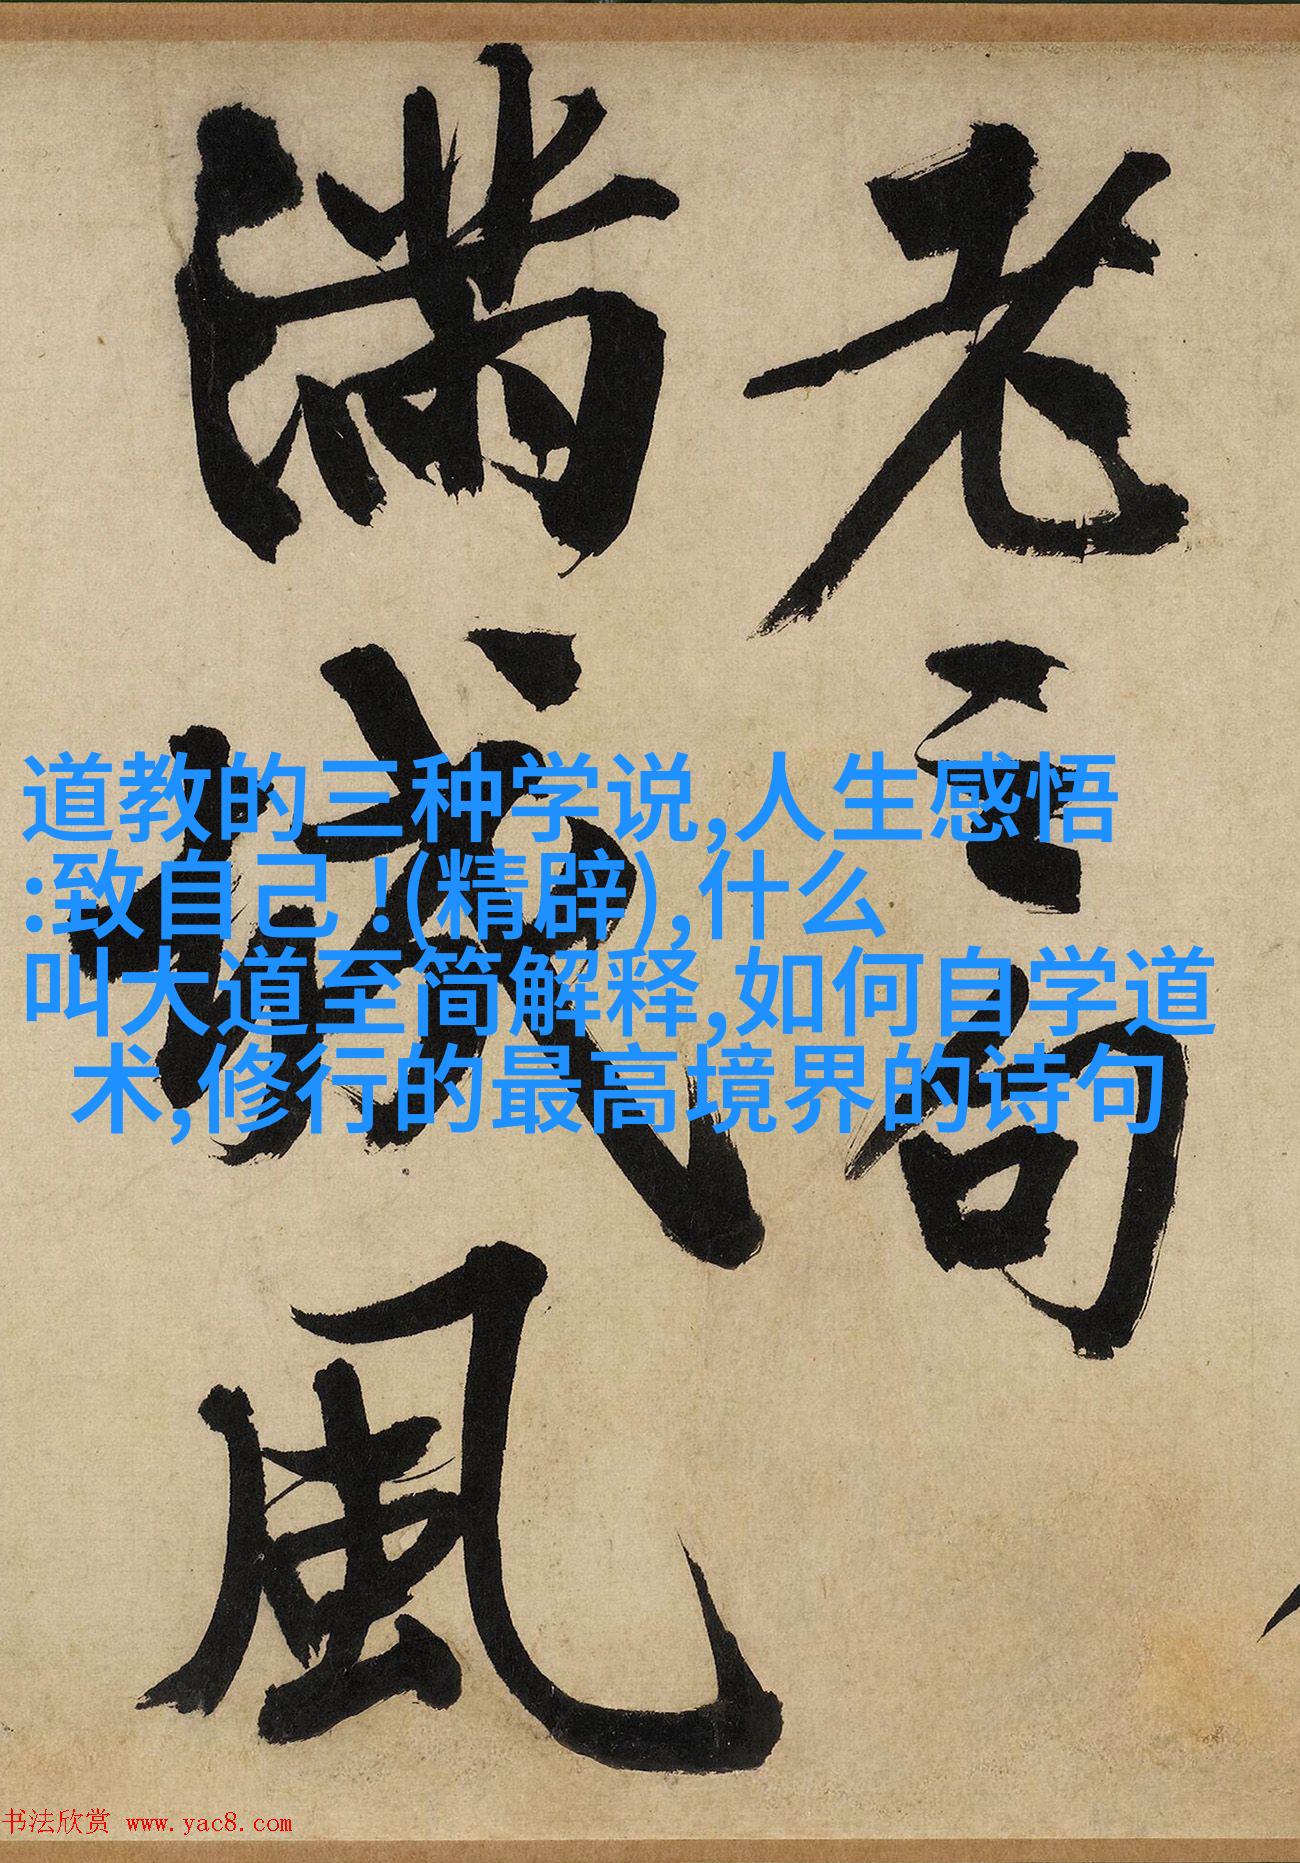 老句
滿城風
道教的三种学说,人生感悟
:致自己！(精辟),什么
叫大道至简解释,如何自学道
术,修行的最高境界的诗句
书法欣赏 www.yac8.com